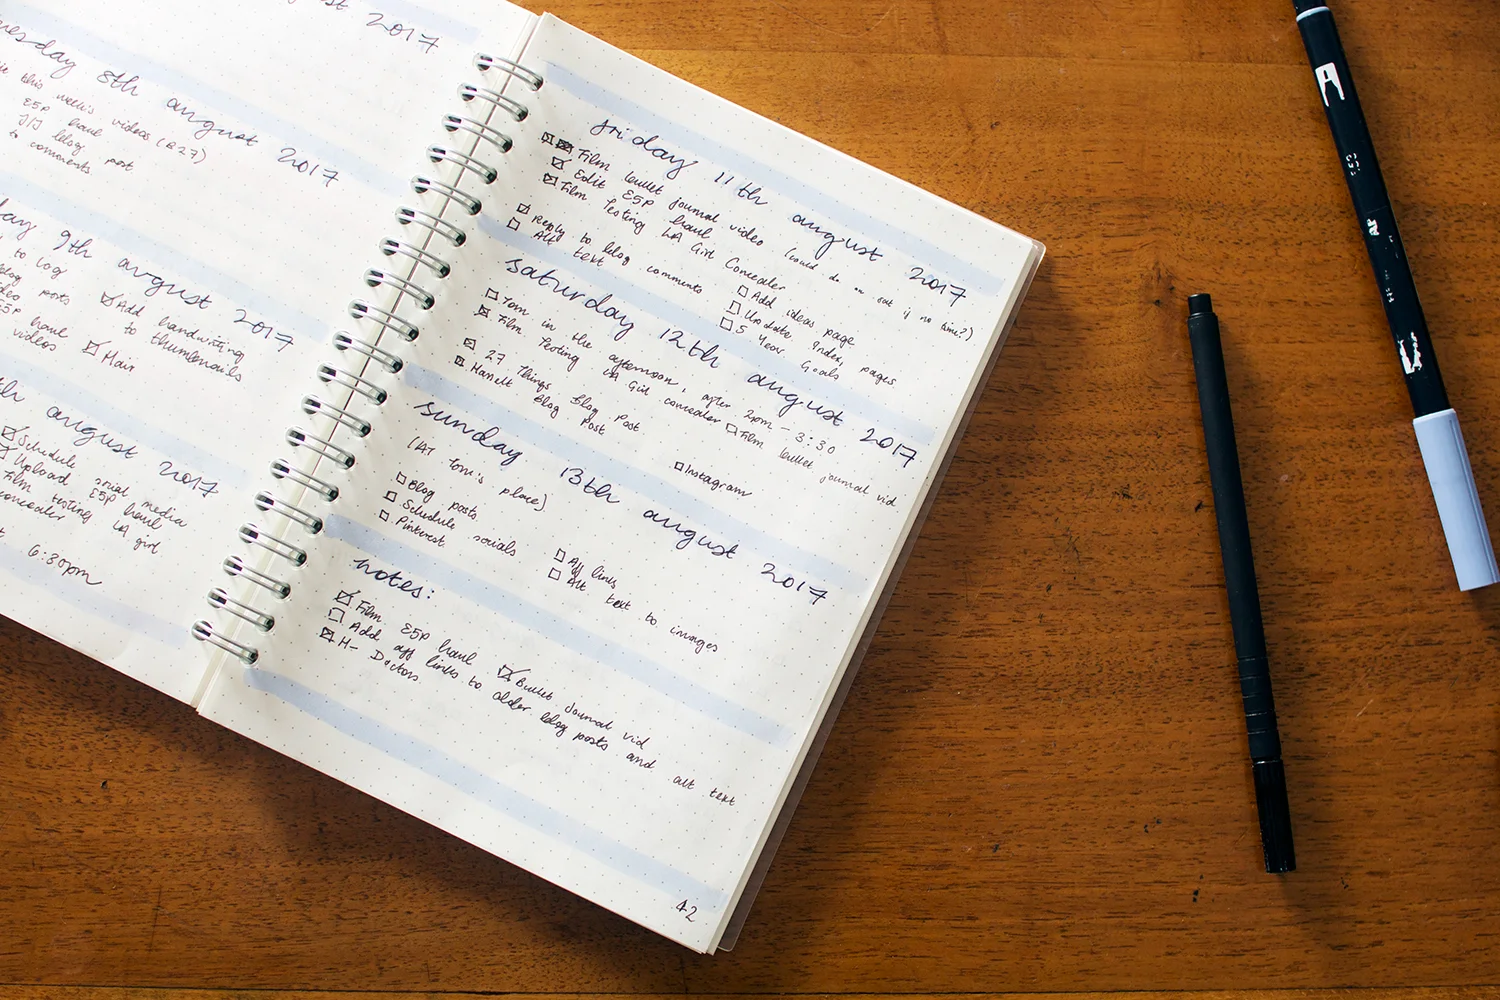 august 2017
wesday 8th august 2017
this week's videos (B27)
ESP haul
blog post
to comments
day 9th august 2017
to log
blog
video posts
ESP haul
videos
Add handwriting
to thumbnails
Hair
th august 2017
Schedule social media
Upload ESP haul
Film testing LA girl
concealer
6:30pm
friday 11th august 2017
Film bullet journal video (could do on sat if no time?)
Edit ESP haul
Film Testing LA Girl Concealer
Reply to blog comments
Alt text
Add ideas page
Update Index, pages
5 Year Goals
saturday 12th august 2017
Town in the afternoon, after 2pm - 3:30
Film Testing LA Girl concealer
27 Things Blog Post
Blog Post
Film bullet journal vid
Instagram
sunday 13th august 2017
(AT Tom's place)
Blog posts
Schedule socials
Pinterest
Aff links
Alt text to images
notes:
Film ESP haul
Add aff links to older blog posts and alt text
H- Doctors
Bullet Journal vid
42